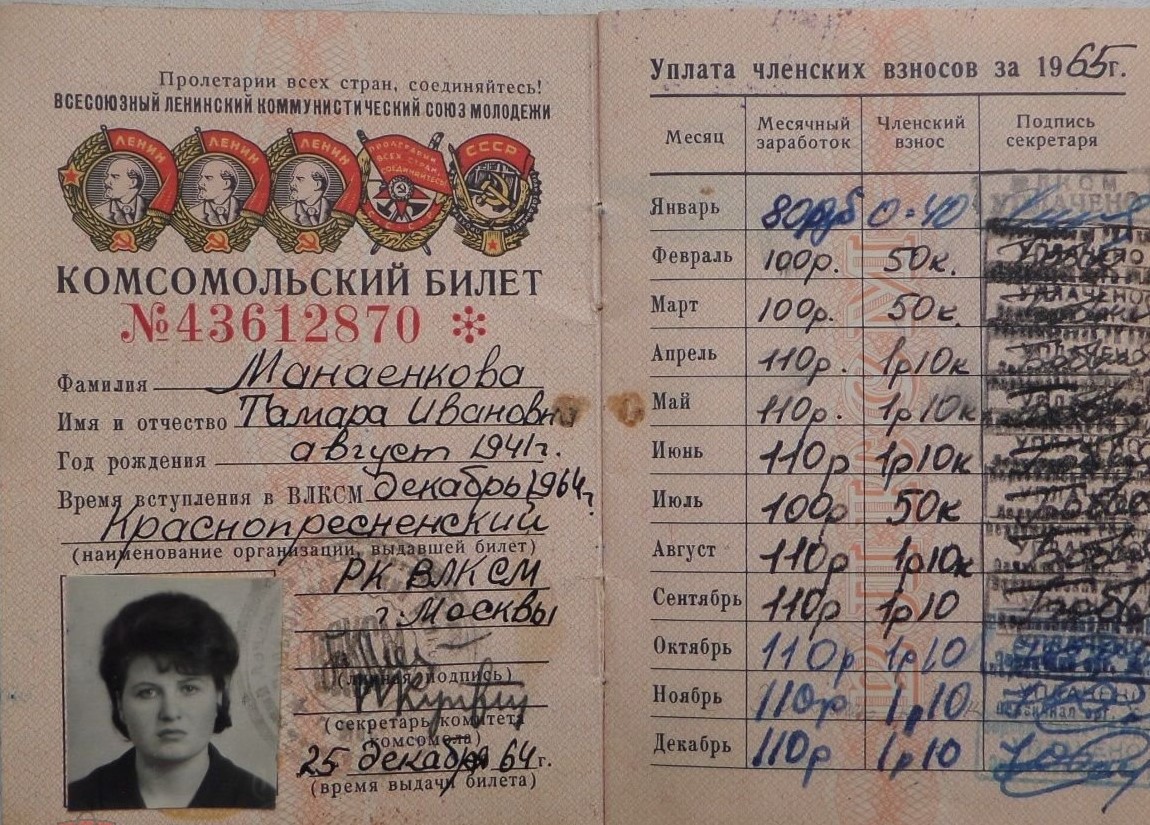 Пролетарии всех стран, соединяйтесь!
ВСЕСОЮЗНЫЙ ЛЕНИНСКИЙ КОММУНИСТИЧЕСКИЙ СОЮЗ МОЛОДЕЖИ
ЛЕНИН ЛЕНИН ЛЕНИН ПРОЛЕТАРИИ ВСЕХ СТРАН, СОЕДИНЯЙТЕСЬ! СССР
КОМСОМОЛЬСКИЙ БИЛЕТ
№43612870 *
Фамилия Манаенкова
Имя и отчество Тамара Ивановна
Год рождения август 1941г.
Время вступления в ВЛКСМ декабрь 1964г.
Краснопресненский
(наименование организации, выдавшей билет)
РК ВЛКСМ
г. Москвы
(личная подпись)
(секретарь комитета комсомола)
25 декабря 64 г.
(время выдачи билета)
Уплата членских взносов за 1965г.
Месяц Месячный заработок Членский взнос Подпись секретаря
Январь 80руб 0-40 УПЛАЧЕНО
Февраль 100р. 50к.
Март 100р. 50к. УПЛАЧЕНО
Апрель 110р. 1р10к
Май 110р. 1р10к
Июнь 110р 1р10к
Июль 100р 50к
Август 110р 1р10к
Сентябрь 110р 1р10
Октябрь 110р 1р10
Ноябрь 110р 1р10 УПЛАЧЕНО
Декабрь 110р 1р10